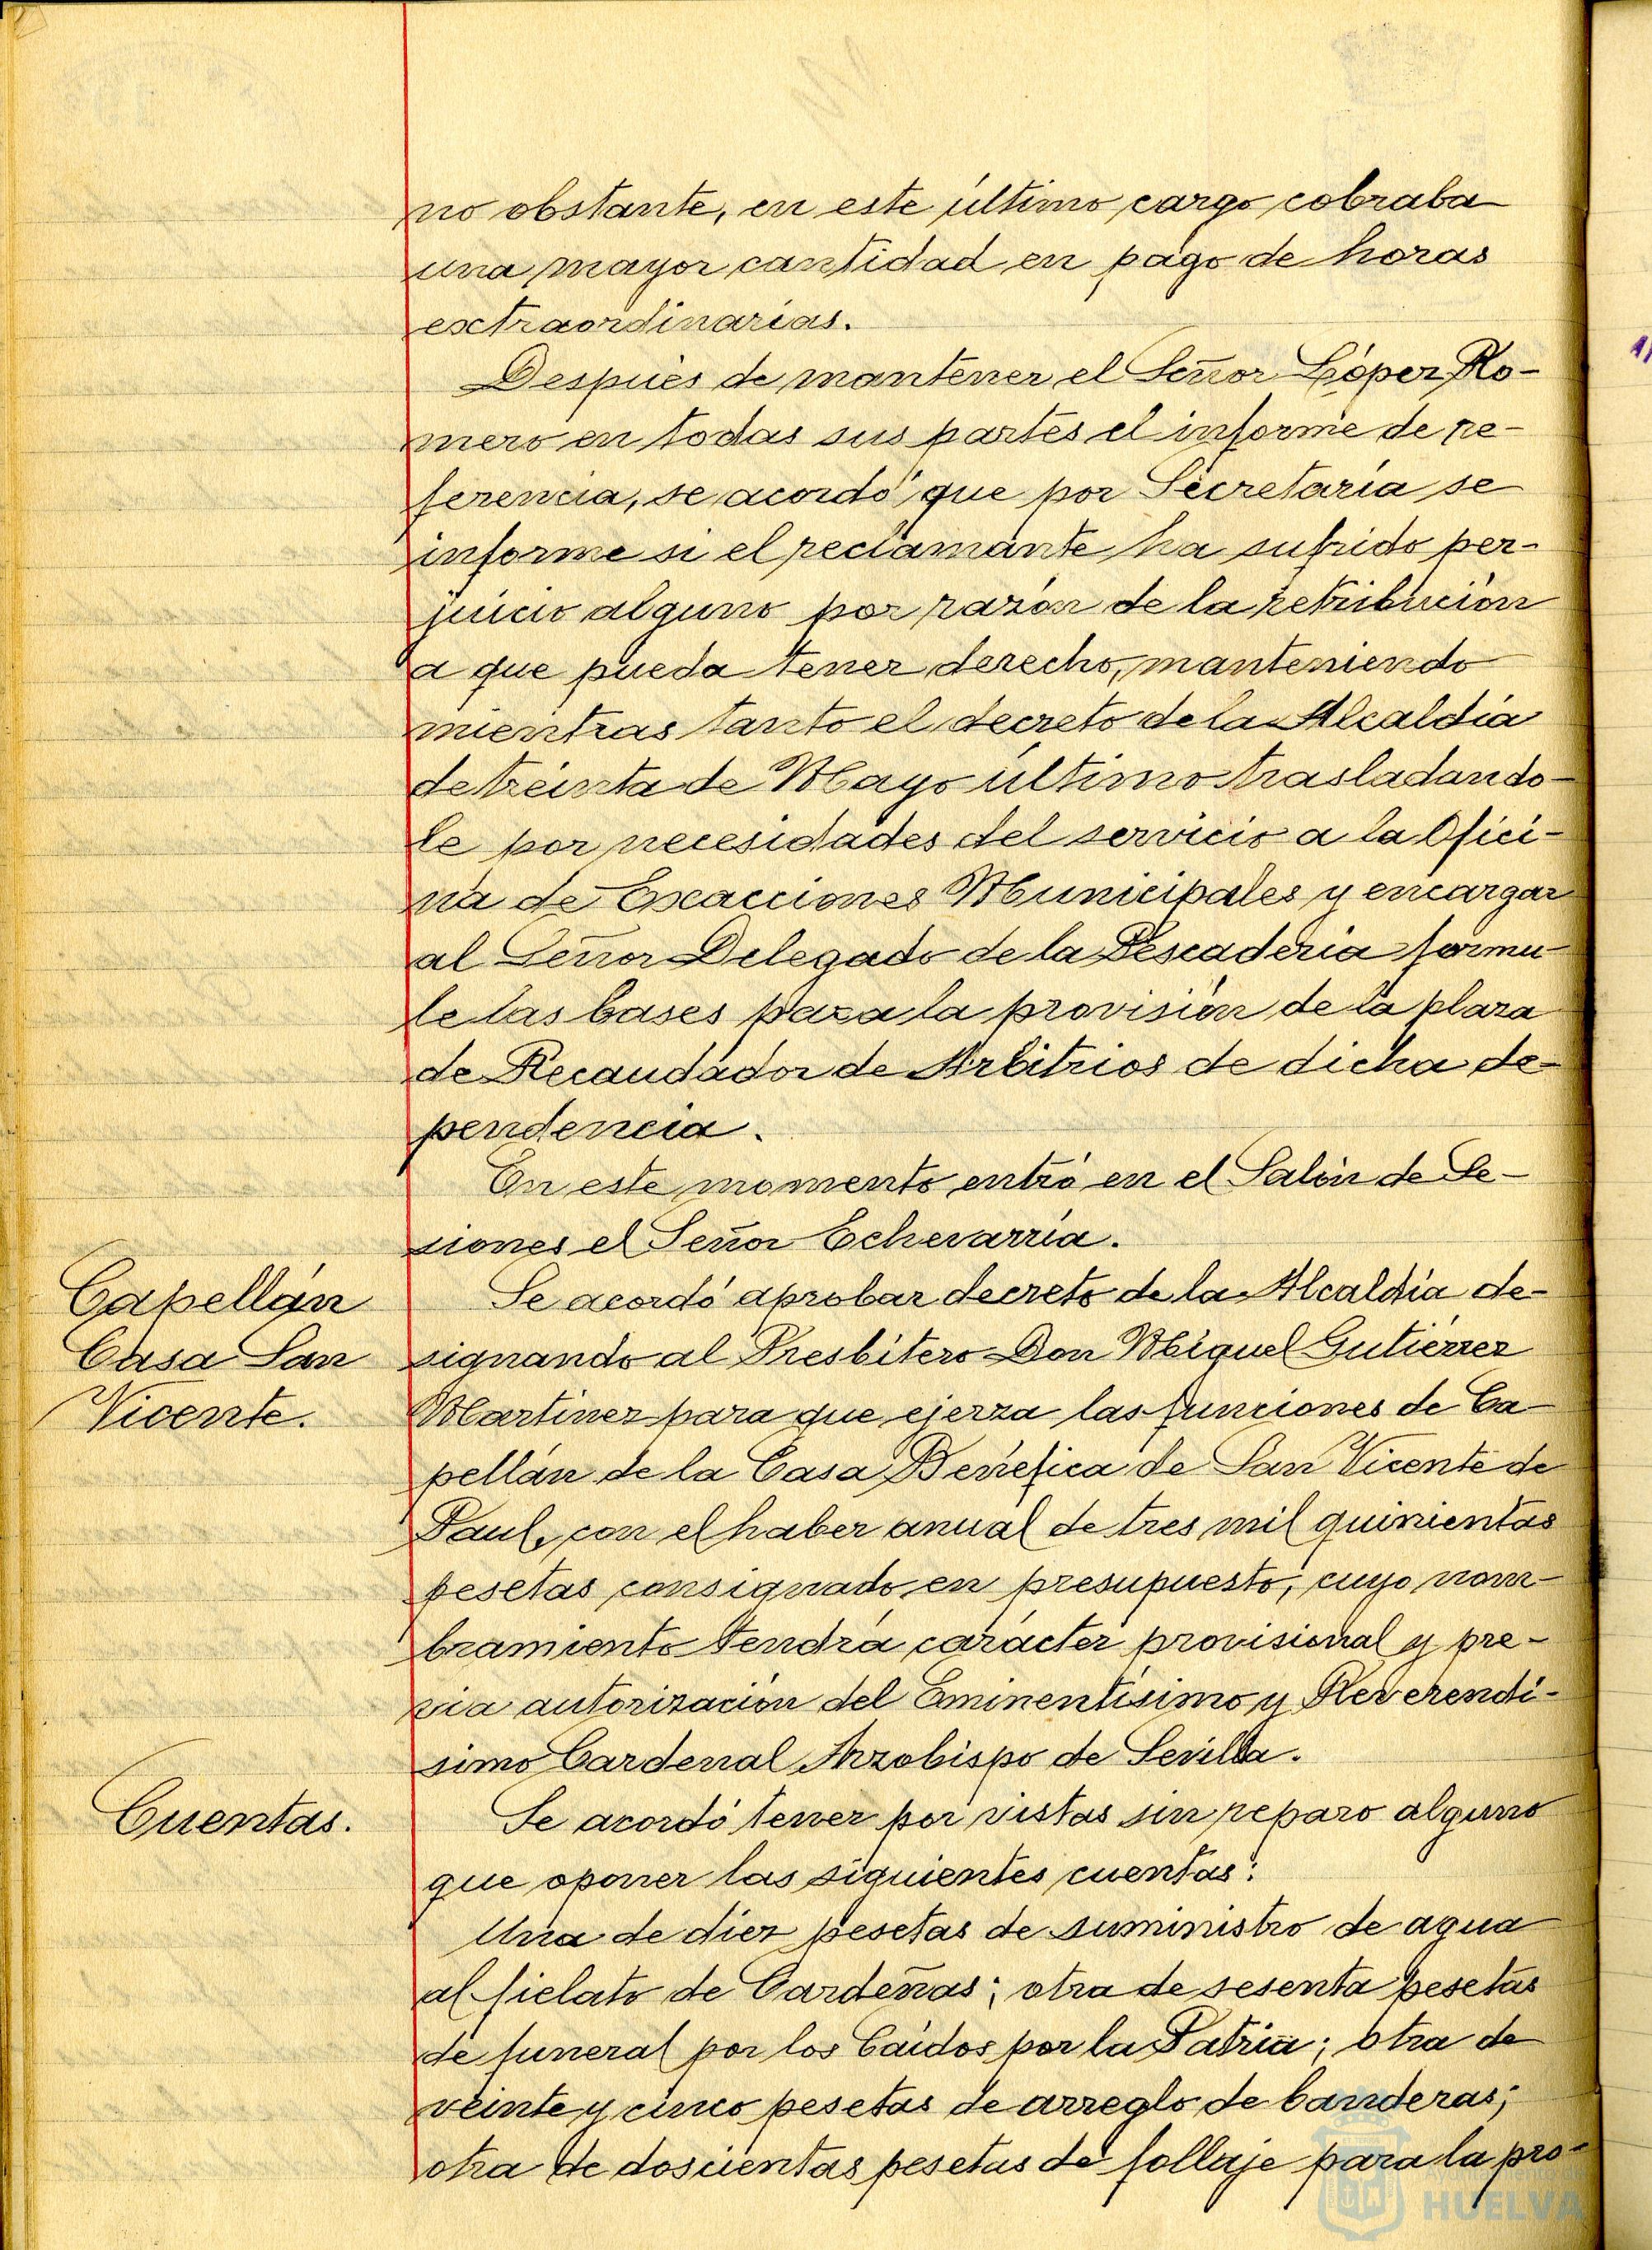 no obstante, en este último cargo cobraba
una mayor cantidad en pago de horas
extraordinarias.
Después de mantener el Señor López Ro-
mero en todas sus partes el informe de re-
ferencia, se acordó que por Secretaría se
informe si el reclamante ha sufrido per-
juicio alguno por razón de la retribución
a que pueda tener derecho, manteniendo
mientras tanto el decreto de la Alcaldía
de treinta de Mayo último trasladando-
le por necesidades del servicio a la Ofici-
na de Exacciones Municipales y encargar
al Señor Delegado de la Pescadería formu-
le las bases para la provisión de la plaza
de Recaudador de Arbitrios de dicha de-
pendencia.
En este momento entró en el Salón de Se-
siones el Señor Echevarría.
Capellán
Casa San
Vicente.
Se acordó aprobar decreto de la Alcaldía de-
signando al Presbítero Don Miguel Gutiérrez
Martínez para que ejerza las funciones de Ca-
pellán de la Casa Benéfica de San Vicente de
Paul, con el haber anual de tres mil quinientas
pesetas consignado en presupuesto, cuyo nom-
bramiento tendrá carácter provisional y pre-
via autorización del Eminentísimo y Reverendí-
simo Cardenal Arzobispo de Sevilla.
Cuentas.
Se acordó tener por vistas sin reparo alguno
que oponer las siguientes cuentas:
Una de diez pesetas de suministro de agua
al fielato de Cardeñas; otra de sesenta pesetas
de funeral por los Caídos por la Patria; otra de
veinte y cinco pesetas de arreglo de banderas;
otra de doscientas pesetas de follaje para la pro-
Ayuntamiento de
HUELVA